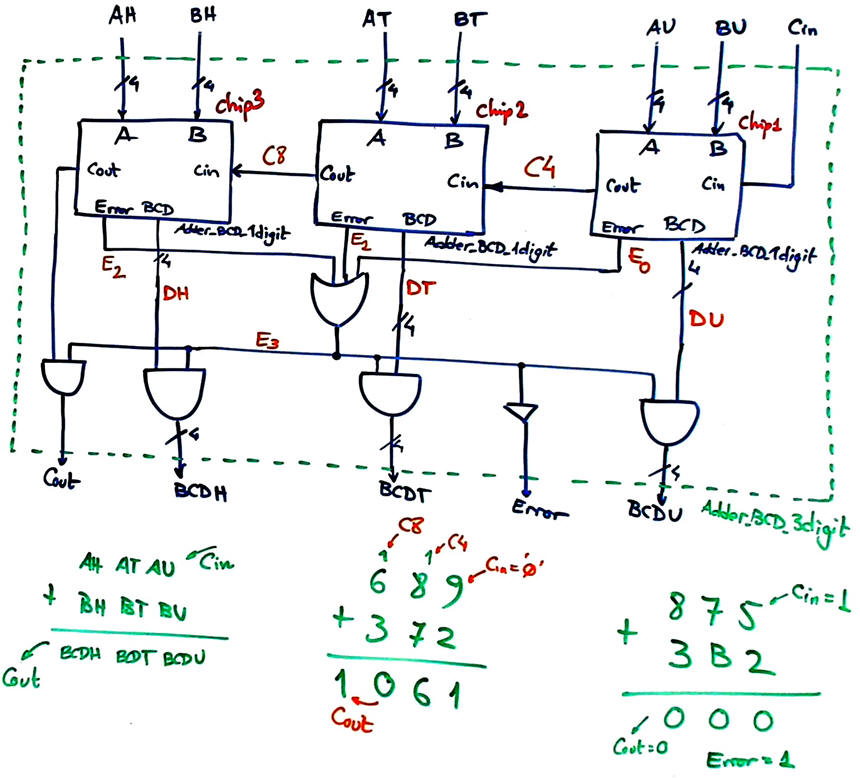 AH BH AT BT AU BU Cin
4 4 4 4 4 4
Chip3 Chip2 Chip1
A B A B A B
Cout Cin C8 Cout Cin C4 Cout Cin
Error BCD Error BCD Error BCD
Adder_BCD_1digit Adder_BCD_1digit Adder_BCD_1digit
E2 4 E2 E0 4
DH DT DU
4
E3
4 4 4
Cout BCDH BCDT Error BCDU
Adder_BCD_3digit
AH AT AU Cin
+ BH BT BU
BCDH BCDT BCDU
Cout
C8
1 1 C4
6 8 9 Cin='0'
+ 3 7 2
1 0 6 1
Cout
8 7 5 Cin=1
+ 3 B 2
0 0 0
Cout=0 Error=1